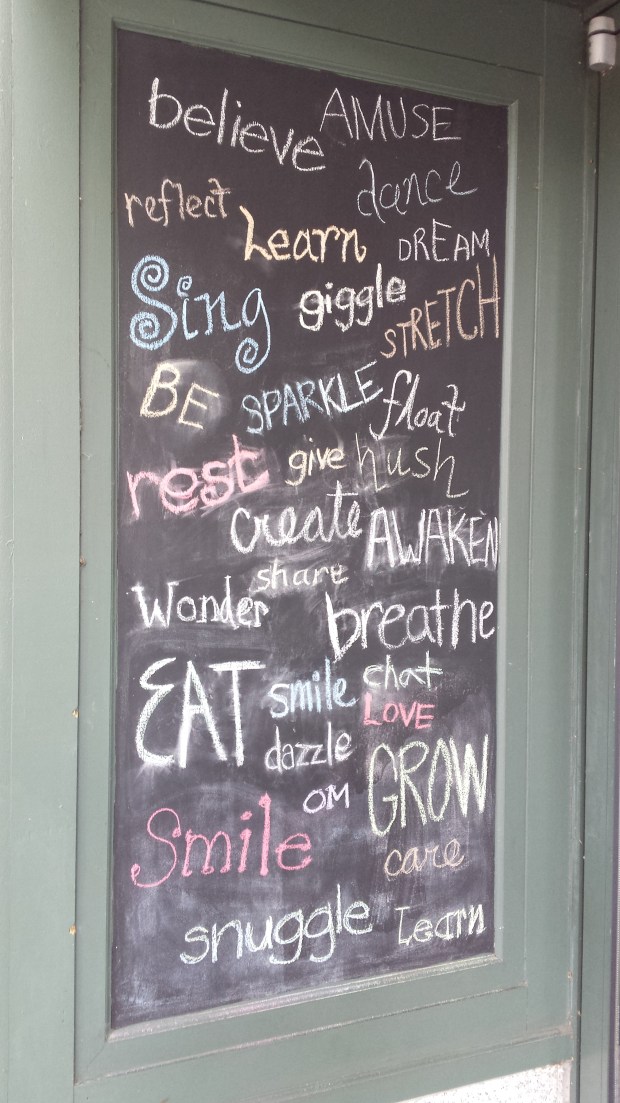 believe AMUSE
dance
reflect
Learn DREAM
Sing giggle STRETCH
BE SPARKLE float
rest give hush
create AWAKEN
share
Wonder breathe
EAT smile chat
LOVE
dazzle
OM GROW
Smile care
snuggle Learn